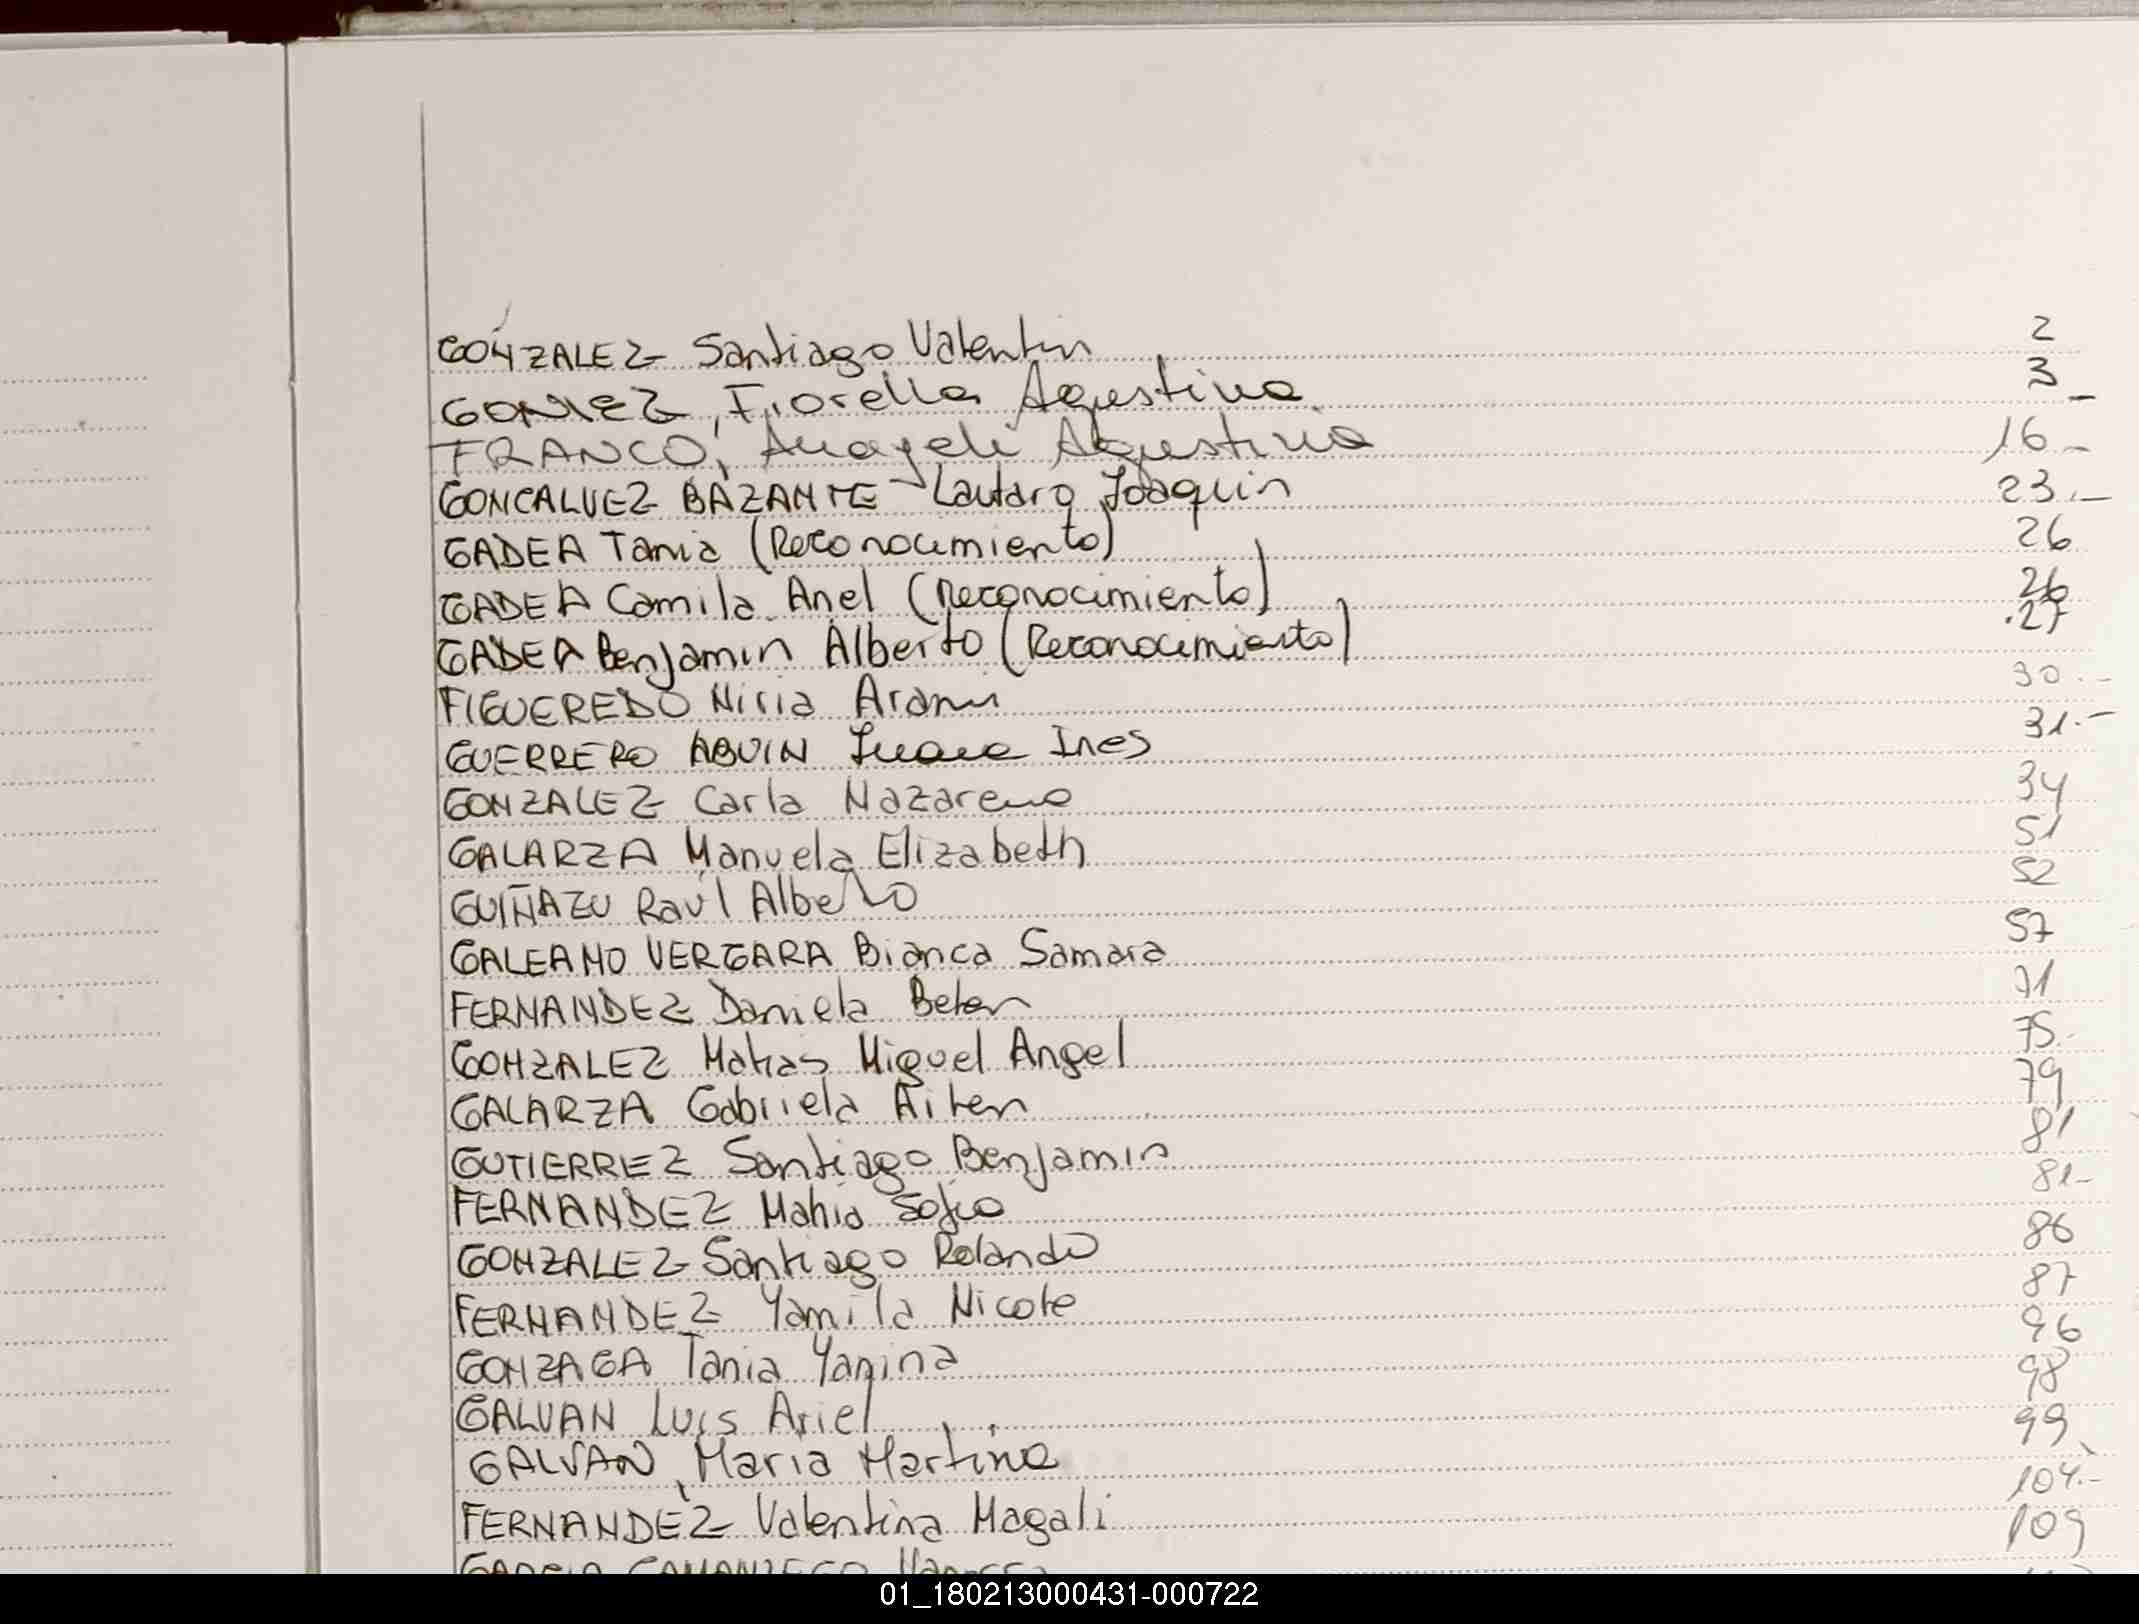 GONZALEZ Santiago Valentin 2
GOMEZ, Fiorella Agustina 3
FRANCO, Anayeli Agustina 16
GONCALVEZ BAZANTE Lautaro Joaquin 23
GADEA Tania (Reconocimiento) 26
GADEA Camila Anel (Reconocimiento) 26
GADEA Benjamin Alberto (Reconocimiento) 27
FIGUEREDO Niria Arami 30
GUERRERO ABUIN Juana Ines 31
GONZALEZ Carla Nazarena 34
GALARZA Manuela Elizabeth 51
GUIÑAZU Raúl Alberto 52
GALEANO VERGARA Bianca Samara 57
FERNANDEZ Daniela Belen 71
GONZALEZ Matias Miguel Angel 75
GALARZA Gabriela Ailen 79
GUTIERREZ Santiago Benjamin 81
FERNANDEZ Mahia Sofia 81
GONZALEZ Santiago Rolando 86
FERNANDEZ Yamila Nicole 87
GONZAGA Tania Yanina 96
GALVAN Luis Ariel 98
GALVAN, Maria Martina 99
FERNANDEZ Valentina Magali 104
109
01_180213000431-000722